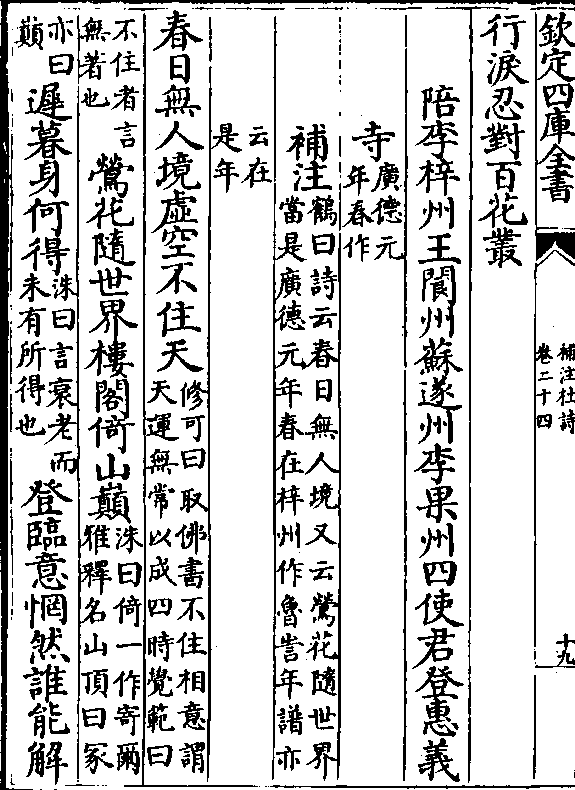 欽定四庫全書
補注杜詩
卷二十四
十九
行淚忍對百花叢
陪李梓州王閬州蘇遂州李果州四使君登惠義
寺廣德元
年春作
補注鶴曰詩云春日無人境又云鶯花隨世界
當是廣德元年春在梓州作魯訔年譜亦
云在
是年
春日無人境虛空不住天修可曰取佛書不住相意謂
天運無常以成四時覺範曰
不住者言
無著也鶯花隨世界樓閣倚山巔洙曰倚一作寄爾
雅釋名山頂曰冢
亦曰
巔遲暮身何得洙曰言衰老而
未有所得也登臨意惘然誰能解